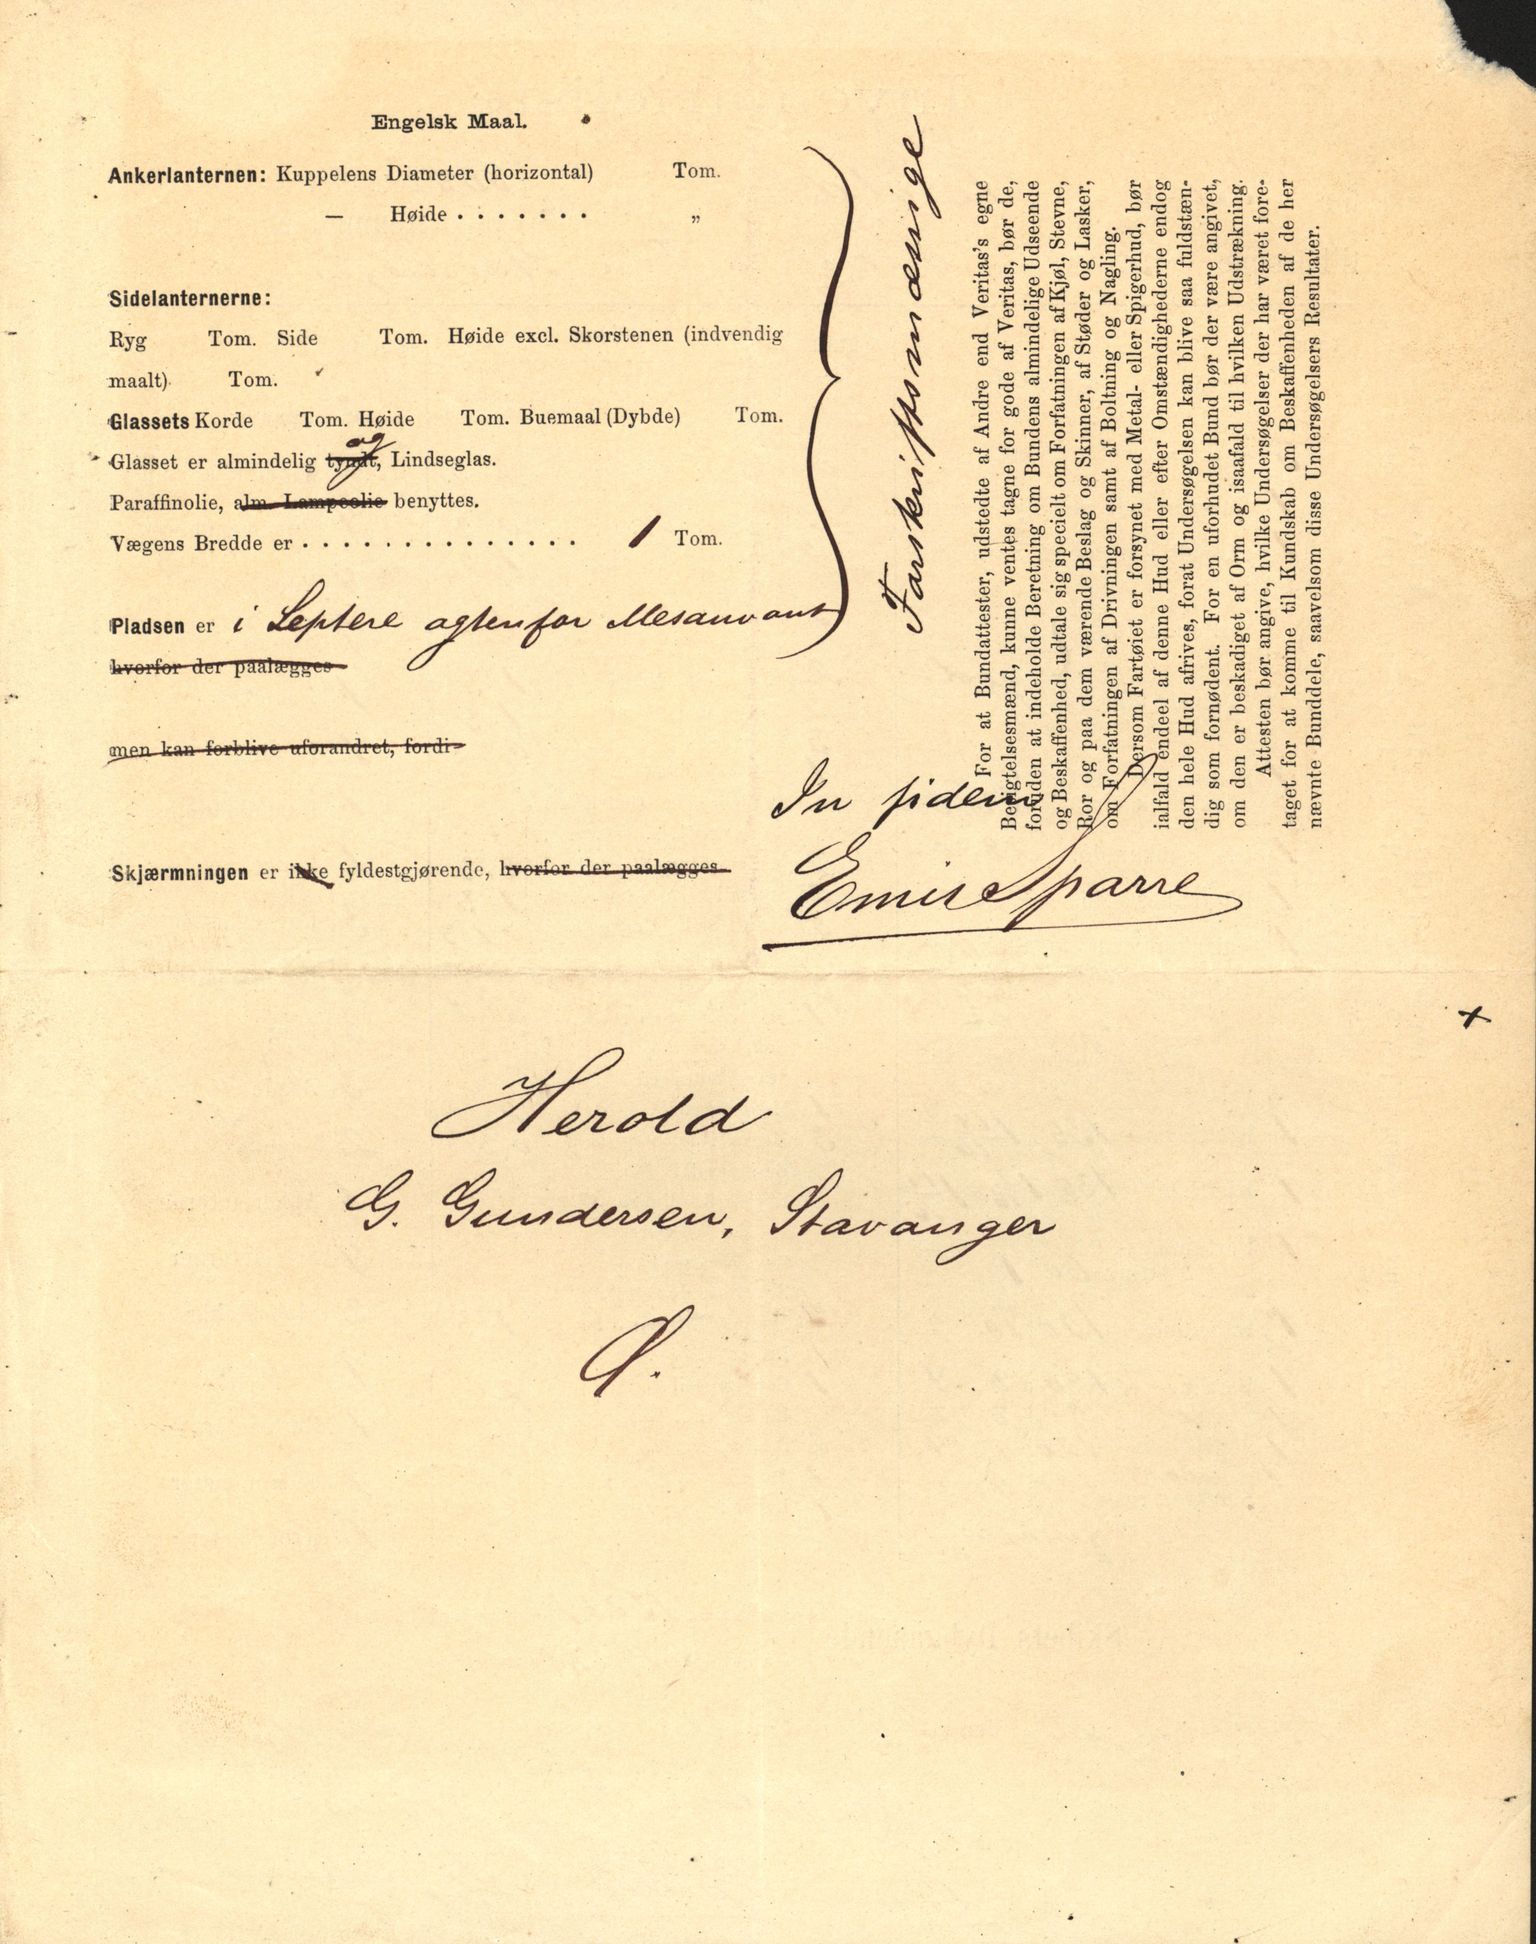 Engelsk Maal.
Ankerlanternen: Kuppelens Diameter (horizontal) Tom.
— Høide . . . . . . . „
Sidelanternerne:
Ryg Tom. Side Tom. Høide excl. Skorstenen (indvendig
maalt). Tom.
Glassets Korde Tom. Høide Tom. Buemaal (Dybde) Tom.
og
Glasset er almindelig tyndt, Lindseglas.
Paraffinolie, alm. Lampeolie benyttes.
Vægens Bredde er . . . . . . . . . . . . . . 1 Tom.
Pladsen er i Leptere agtenfor Mesanvant
hvorfor der paalægges
men kan forblive uforandret, fordi
Skjærmningen er ikke fyldestgjørende, hvorfor der paalægges
Forskriftsmæssige
For at Bundattester, udstedte af Andre end Veritas's egne
Besigtelsesmænd, kunne ventes tagne for gode af Veritas, bør de,
foruden at indeholde Beretning om Bundens almindelige Udseende
og Beskaffenhed, udtale sig specielt om Forfatningen af Kjøl, Stevne,
Ror og paa dem værende Beslag og Skinner, af Støder og Lasker,
om Forfatningen af Drivningen samt af Boltning og Nagling.
Dersom Fartøiet er forsynet med Metal- eller Spigerhud, bør
ialfald endeel af denne Hud eller efter Omstændighederne endog
den hele Hud afrives, forat Undersøgelsen kan blive saa fuldstæn-
dig som fornødent. For en uforhudet Bund bør der være angivet,
om den er beskadiget af Orm og isaafald til hvilken Udstrækning.
Attesten bør angive, hvilke Undersøgelser der har været fore-
taget for at komme til Kundskab om Beskaffenheden af de her
nævnte Bunddele, saavelsom disse Undersøgelsers Resultater.
In fidem
Emil Sparre
Herold
G. Gundersen, Stavanger
Ø.